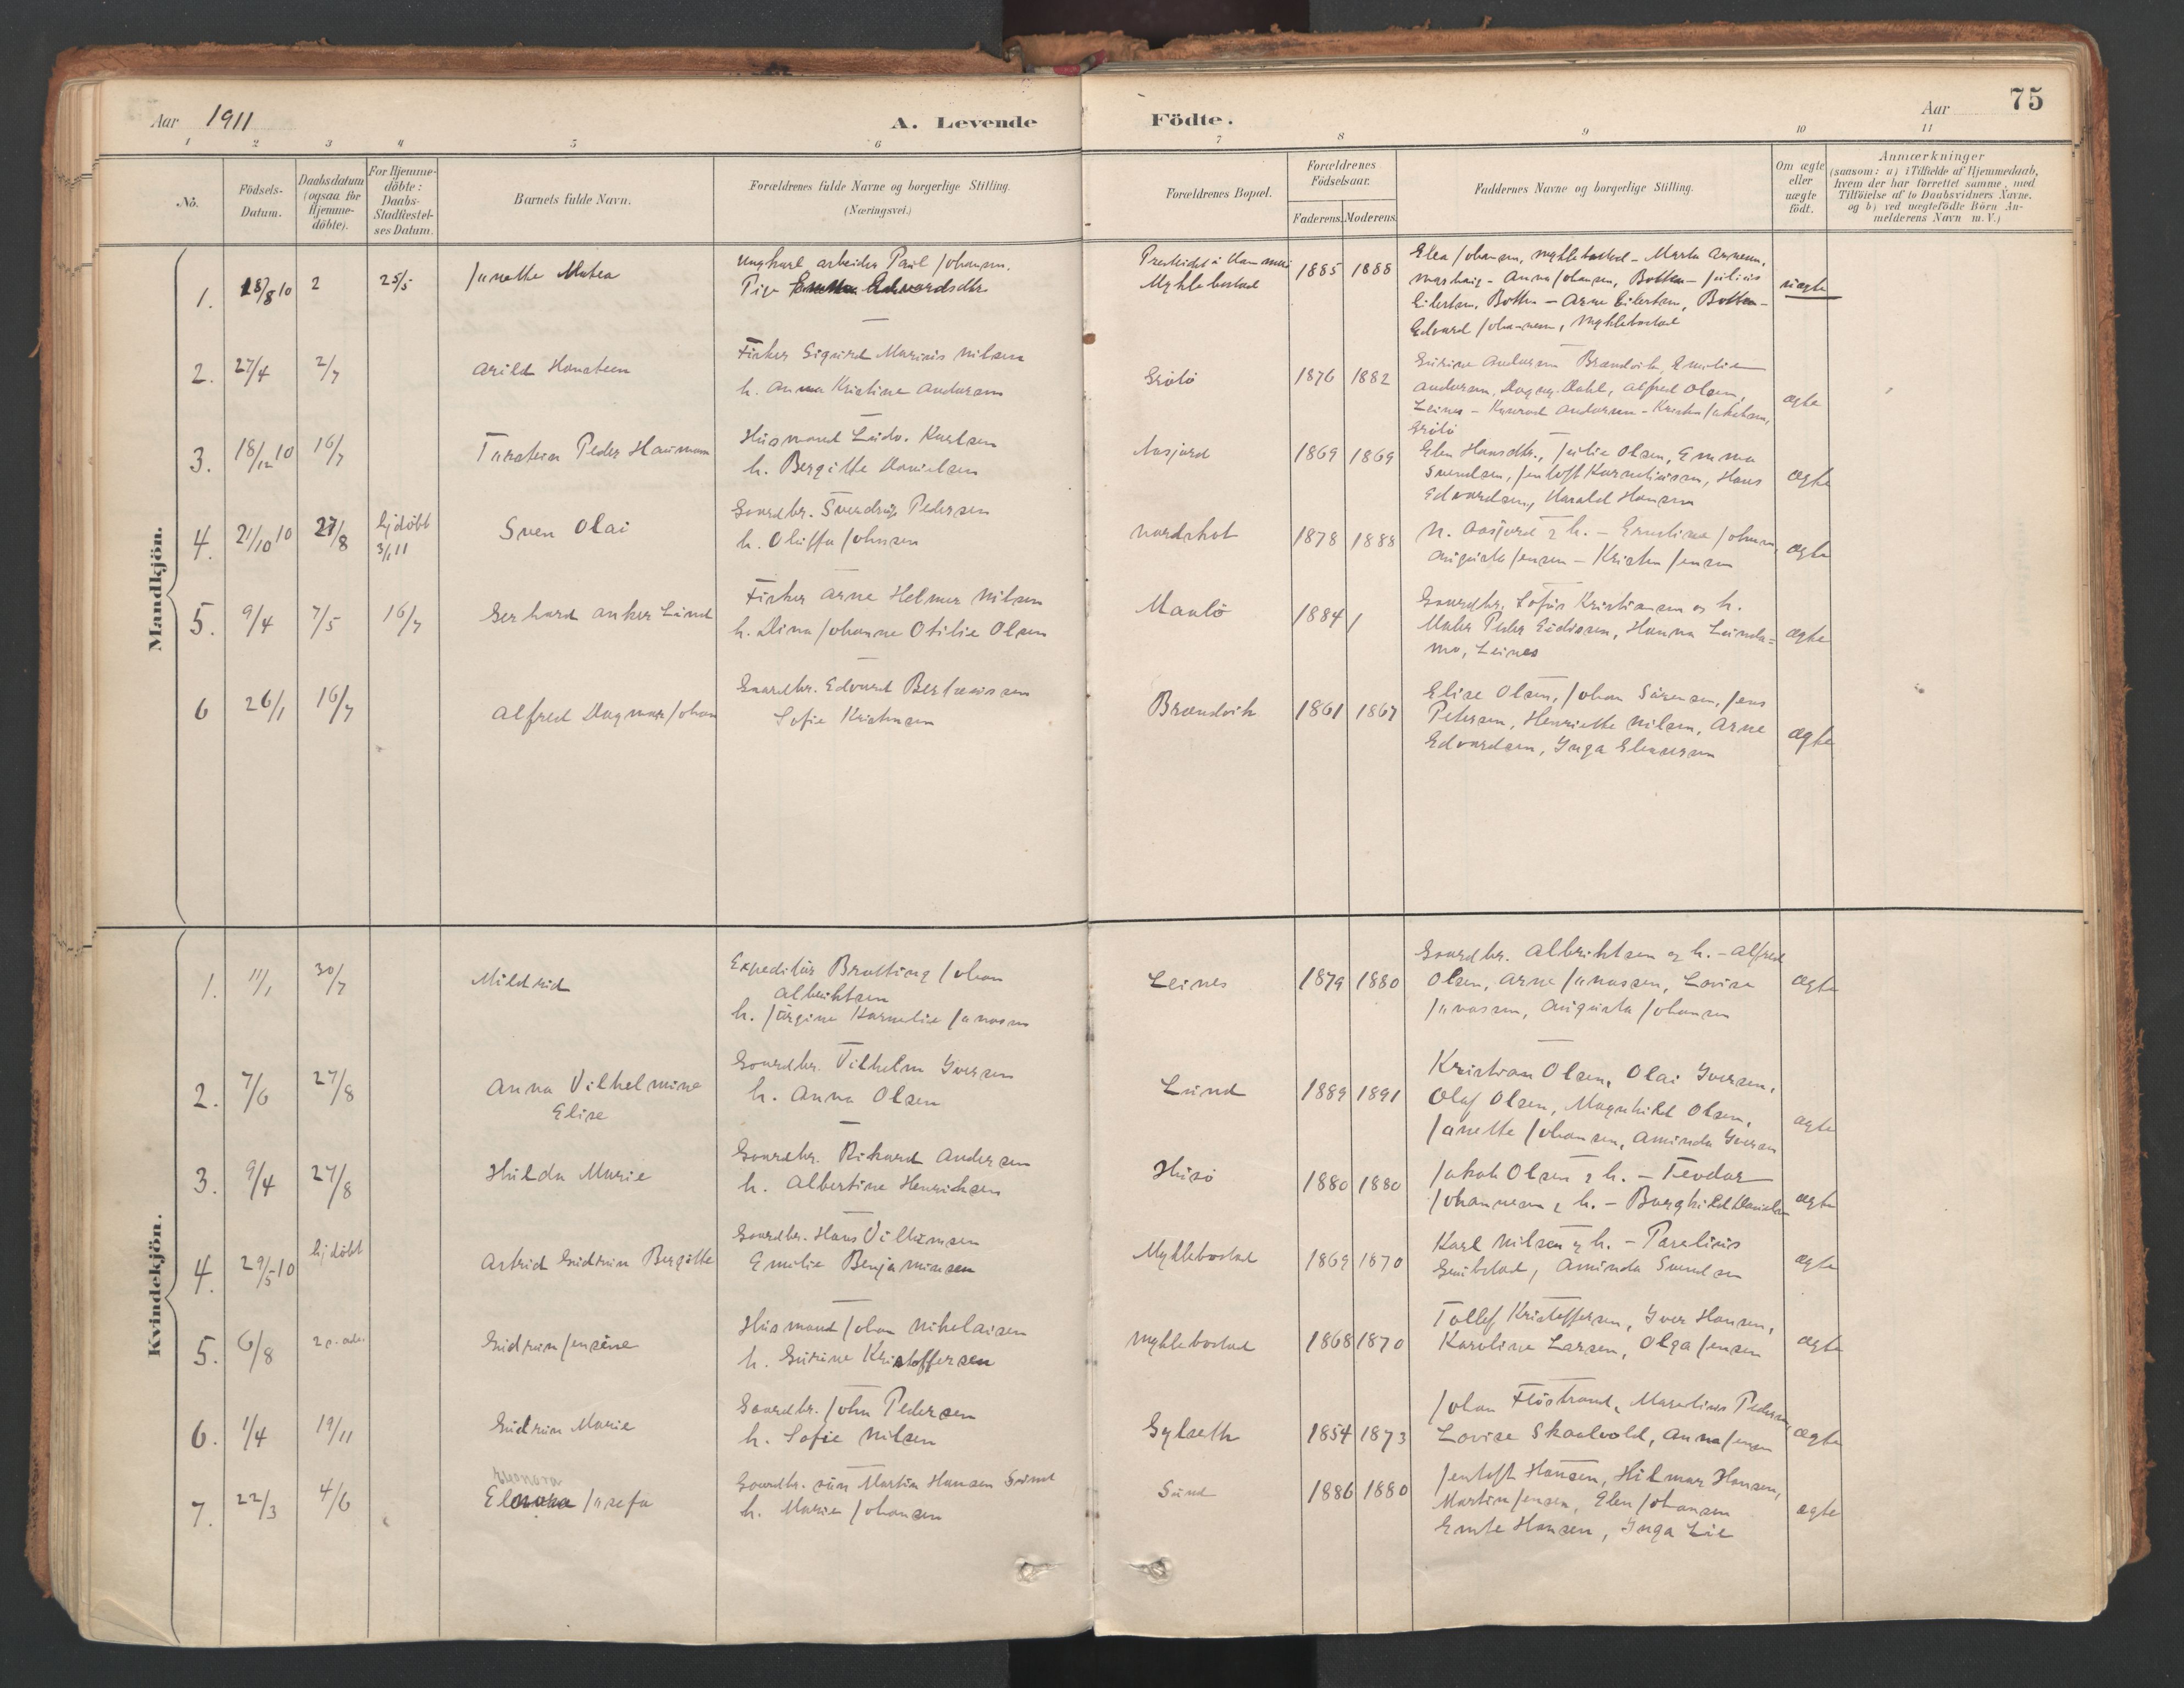 Aar 1911
A. Levende
Födte.
Aar
75
1 2 3 4 5 6 7 8 9 10 11
No.
Födsels-
Datum.
Daabsdatum
(ogsaa for
Hjemme-
döbte).
For Hjemme-
döbte:
Daabs-
Stadfæstel-
ses Datum.
Barnets fulde Navn.
Forældrenes fulde Navne og borgerlige Stilling.
(Næringsvei.)
Forældrenes Bopæl.
Forældrenes
Födselsaar.
Faderens. Moderens.
Faddernes Navne og borgerlige Stilling.
Om ægte
eller
uægte
födt.
Anmærkninger
(saasom: a) i Tilfælde af Hjemmedaab,
hvem der har forrettet samme, med
Tilföielse af to Daabsvidners Navne.
og b) ved uægtefödte Börn An-
melderens Navn m. V.)
Mandkjön.
1. 18/8 10 2 25/5
Ungkarl arbeider Paul Johansen.
Pige Edvardsdtr
Myklebostad
1885 1888
Elea Johansen, Myklebostad - Marta Arnesen,
Anna Johansen, Botten - Julius
Eilertsen, Botten - Arne Eilertsen, Botten -
Edvard Johannesen, Myklebostad
uægte
2. 27/4 2/7
Arild Haasteen
Fisker Sigurd Marius Nilsen
h. Anna Kristine Andersen
Grötö
1876 1882
Gurine Andersen Brændvik, Emilie
Andersen, Dagny Dahl, Alfred Olsen,
Leines - Konrad Andersen - Kristen Jakobsen,
Grötö
ægte
3. 18/12 10 16/7
Torstein Peder Hartman
Husmand Ludv. Karlsen
h. Bergitte Danielsen
Aasjord
1869 1869
Elen Hansdtr., Julie Olsen, Emma
Svendsen, Jentoft Korneliussen, Hans
Edvardsen, Harald Hansen
ægte
4. 21/10 10 27/8 hjdöbt
3/1 11
Sven Olai
Gaardbr. Sverdrup Pedersen
h. Oluffa Johnsen
Nordskot
1878 1888
N. Aasjord & h. - Ernstine Johnsen,
Augusta Jensen - Kristen Jensen
ægte
5. 9/4 7/5 16/7
Gerhard Anker Lund
Fisker Arne Helmer Nilsen
h. Dina Johanne Otilie Olsen
Manlö
1884 /
Gaardbr. Sofus Kristiansen og h.
Maler Peder Eidissen, Hanna Lunda=
mo, Leines
ægte
6 26/1 16/7
Alfred Dagmar Johan
Gaardbr. Edvard Bertheussen
Sofie Kristensen
Brændvik
1861 1867
Elise Olsen, Johan Sörensen, Jens
Petersen, Henriette Nilsen, Arne
Edvardsen, Inga Eleasersen
ægte
Kvindekjön.
1. 11/1 30/7
Mildrid
Expeditör Bratting Johan
Albrihtsen
h. Jörgine Kornelie Jonassen
Leines
1879 1880
Gaardbr. Albrihtsen og h. - Alfred
Olsen, Arne Jonassen, Lovise
Jonassen, Augusta Johansen
ægte
2. 7/6 27/8
Anna Vilhelmine
Elise
Gaardbr. Vilhelm Iversen
h. Anna Olsen
Lund
1889 1891
Kristian Olsen, Olai Iversen,
Olaf Olsen, Magnhild Olsen,
Janette Johansen, Aminda Iversen
ægte
3. 9/4 27/8
Hulda Marie
Gaardbr. Rikard Andersen
h. Albertine Henriksen
Husö
1880 1880
Jakob Olsen & h. - Teodor
Johannesen & h. - Borghild Danielsen
ægte
4. 29/5-10 hjdöbt
Astrid Gudrun Bergitte
Gaardbr. Hans Villumsen
Emilie Benjaminsen
Myklebostad
1869 1870
Karl Nilsen og h. - Parelius
Aminda Svendsen
ægte
5. 6/8 2 s. adv.
Gudrun Jensine
Husmand Johan Nikolaisen
h. Gurine Kristoffersen
Myklebostad
1868 1870
Tollef Kristoffersen, Iver Hansen,
Karoline Larsen, Olga Jensen
ægte
6. 1/4 19/11
Gudrun Marie
Gaardbr. John Pedersen
h. Sofie Nilsen
Gylseth
1854 1873
Johan Flöstrand, Marelius Pedersen,
Lovise Skaalvold, Anna Jensen
ægte
7. 22/3 4/6
Eleonora
Josefa
Gaardbr. sön Martin Hansen Sund
h. Marie Johansen
Sund
1886 1880
Jentoft Hansen, Hilmar Hansen,
Martin Jensen, Elen Johansen
Emte Hansen, Inga Lie
ægte